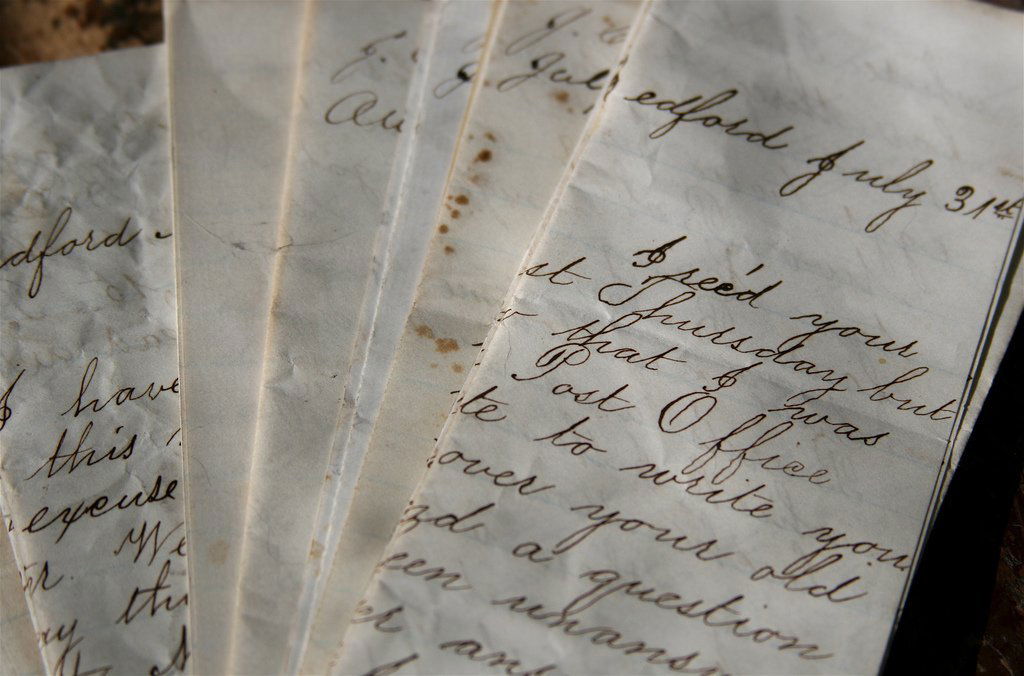 edford July 31st
I rec'd your
st Thursday but
r that I was
Post Office
te to write you
over your old
nd a question
een unansw
er ans
J.
Au
J.
July
dford.
I have
this
excuse
r. We
ay thi